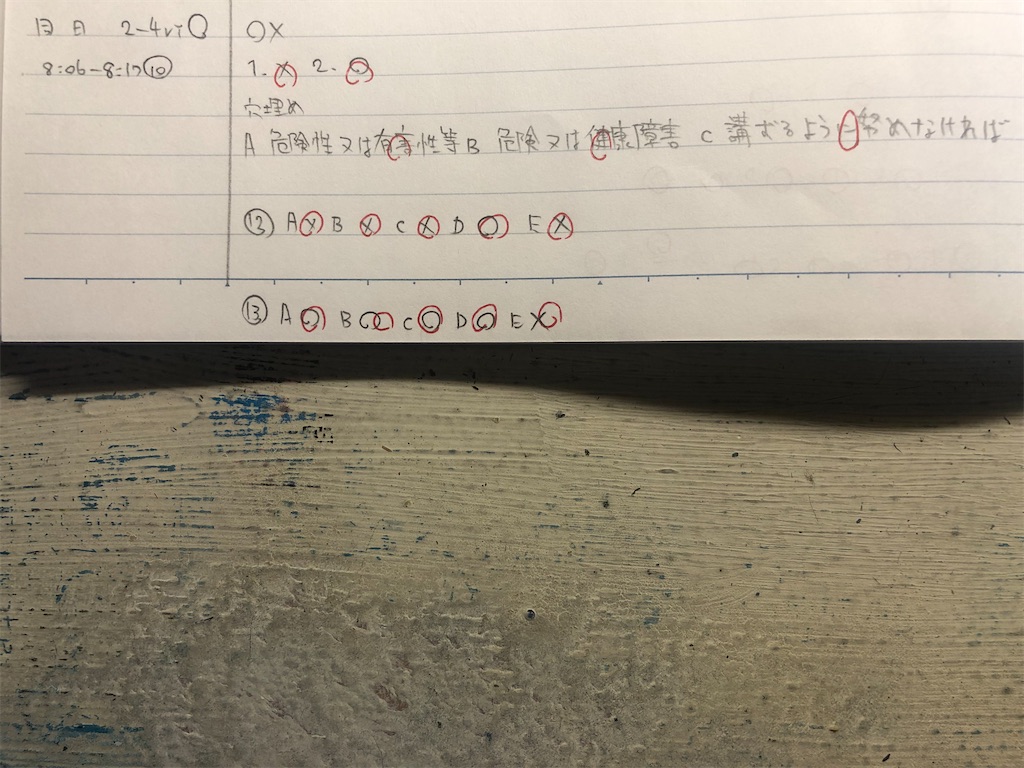 2-4
○×
8:06-8:17 ⑩
1. × 2. ○
穴埋め
A 危険性又は有害性等 B 危険又は健康障害 C 講ずるように努めなければ
⑫ A × B × C × D ○ E ×
⑬ A ○ B ○ C ○ D ○ E ×